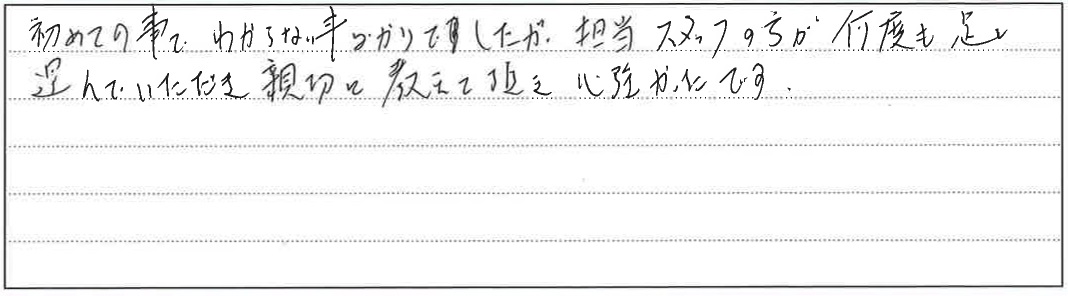 初めての事で わからない事ばかりでしたが、担当スタッフの方が 何度も足を
運んでいただき 親切に 教えて頂き 心強かったです.